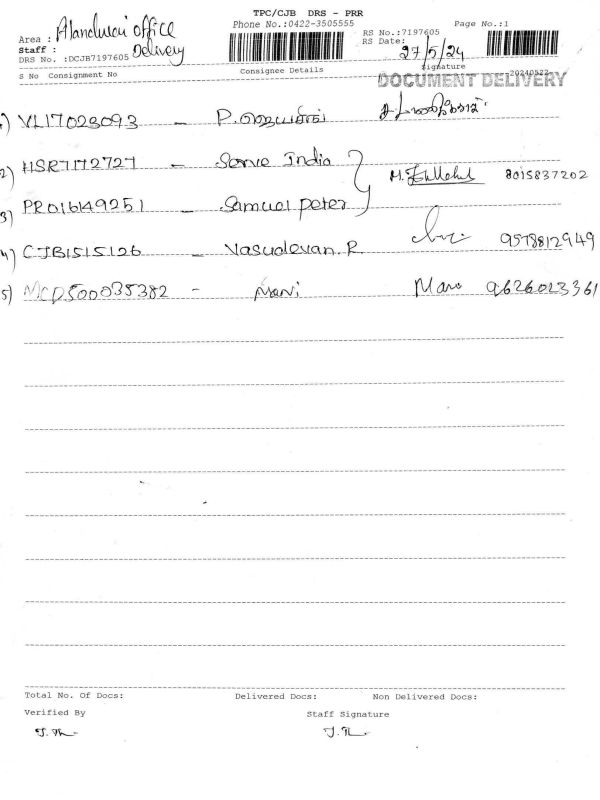 TPC/CJB DRS - PRR
Area : Alandurai office Phone No.:0422-3505555 RS No.:7197605 Page No.:1
Staff : Delivery RS Date: 27/5/24
DRS No. :DCJB7197605 Signature
S No Consignment No Consignee Details 20240522
DOCUMENT DELIVERY
1) VL17023093 - P.
2) HSR7172727 - Serve India 8015837202
3) PRO16149251 - Samuel peter
4) CJB1515126 - Vasudevan.R 9578812949
5) MCD500035382 - Mani Mani 9626023361
Total No. Of Docs: Delivered Docs: Non Delivered Docs:
Verified By Staff Signature